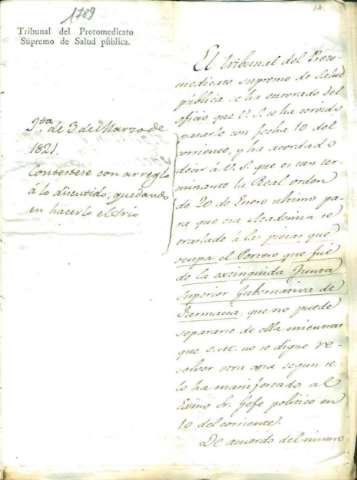 1789
Tribunal del Protomedicato
Supremo de Salud pública.
Jta. de 3 de Marzo de
1821.
Contestese con arreglo
á lo discutido, quedando
en hacerlo el Srio
El Tribunal del Proto
medicato supremo de Salud
publica se ha enterado del
oficio que V. S. se ha servido
pasarle con fecha 10 del
corriente, y ha acordado
decir á V. S. que es tan ter
minante la Real orden
de 20 de Enero ultimo para
que esa Academia se
traslade á las piezas que
ocupa el Correo que fué
de la extinguida Junta
superior Gubernativa de
Farmacia, que no puede
separarse de ella mientras
que S. M. no se digne re
solver otra cosa segun se
lo ha manifestado al
Exmo Sr. Jefe politico en
10 del corriente.
De acuerdo del mismo